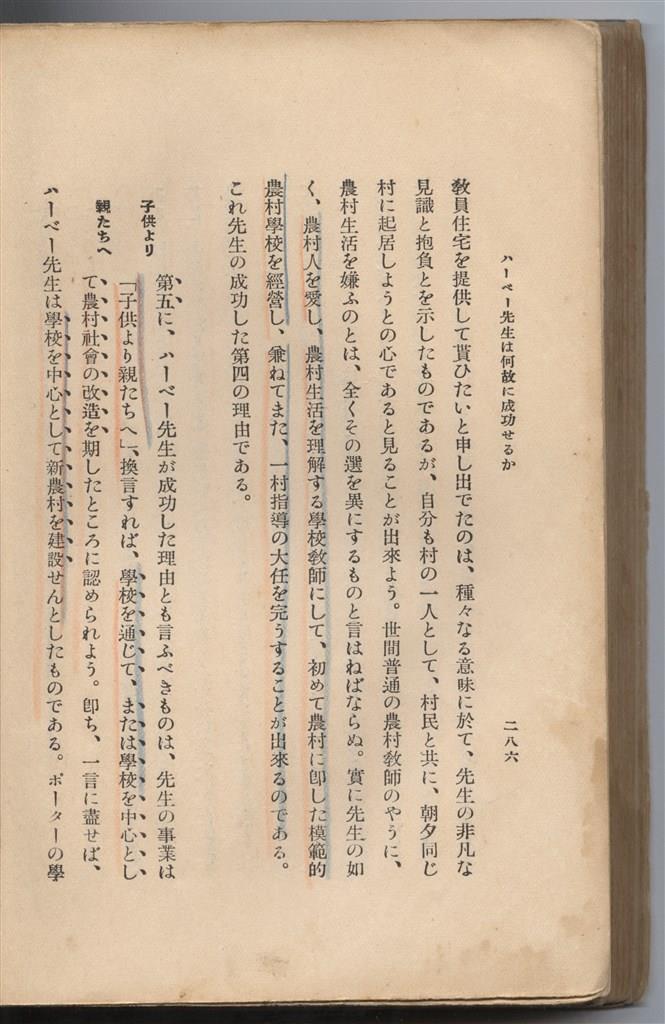 ハーベー先生は何故に成功せるか
二八六
敎員住宅を提供して貰ひたいと申し出でたのは、種々なる意味に於て、先生の非凡な
見識と抱負とを示したものであるが、自分も村の一人として、村民と共に、朝夕同じ
村に起居しようとの心であると見ることが出來よう。世間普通の農村敎師のやうに、
農村生活を嫌ふのとは、全くその選を異にするものと言はねばならぬ。實に先生の如
く、農村人を愛し、農村生活を理解する學校敎師にして、初めて農村に卽した模範的
農村學校を經營し、兼ねてまた、一村指導の大任を完うすることが出來るのである。
これ先生の成功した第四の理由である。
子供より
親たちへ
第五に、ハーベー先生が成功した理由とも言ふべきものは、先生の事業は
「子供より親たちへ」、換言すれば、學校を通じて、または學校を中心とし
て農村社會の改造を期したところに認められよう。卽ち、一言に盡せば、
ハーベー先生は學校を中心として新農村を建設せんとしたものである。ポーターの學